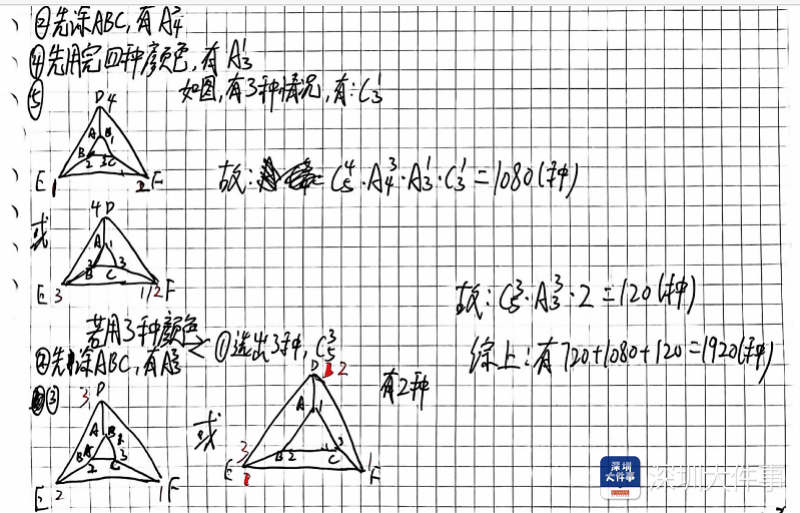 ②先涂ABC,有A³₄
④先用完四种颜色,有A¹₃
⑤ 如图,有3种情况,有:C¹₃
D 4
A B 1
B 2 3 C
E 1 2 F
故: C⁴₅·A³₄·A¹₃·C¹₃=1080(种)
或
4 D
A 1
B C 3
E 3 1/2 F
故:C³₅·A³₃·2=120(种)
综上:有720+1080+120=1920(种)
若用3种颜色 ①选出3种,C³₅
②先涂ABC,有A³₃
③
3 D
A
B 2 C 3
E 2 1 F
或
D 2
A 1
B 2 C 3
E 3 1 F
有2种
深圳大件事
深圳大件事